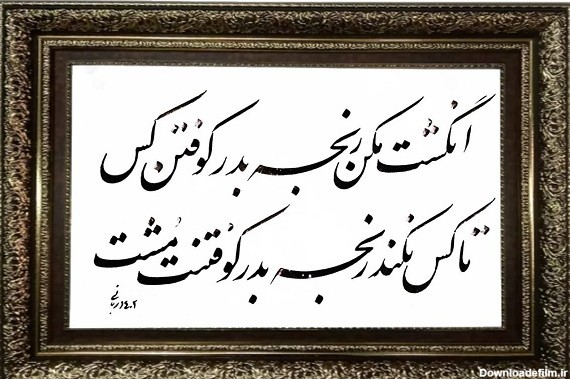 انگشت مکن رنجه بدر کوفتن کس
تا کس نکند رنجه بدر کوفتنت مشت
۱۴۰۲
Downloadefilm.ir